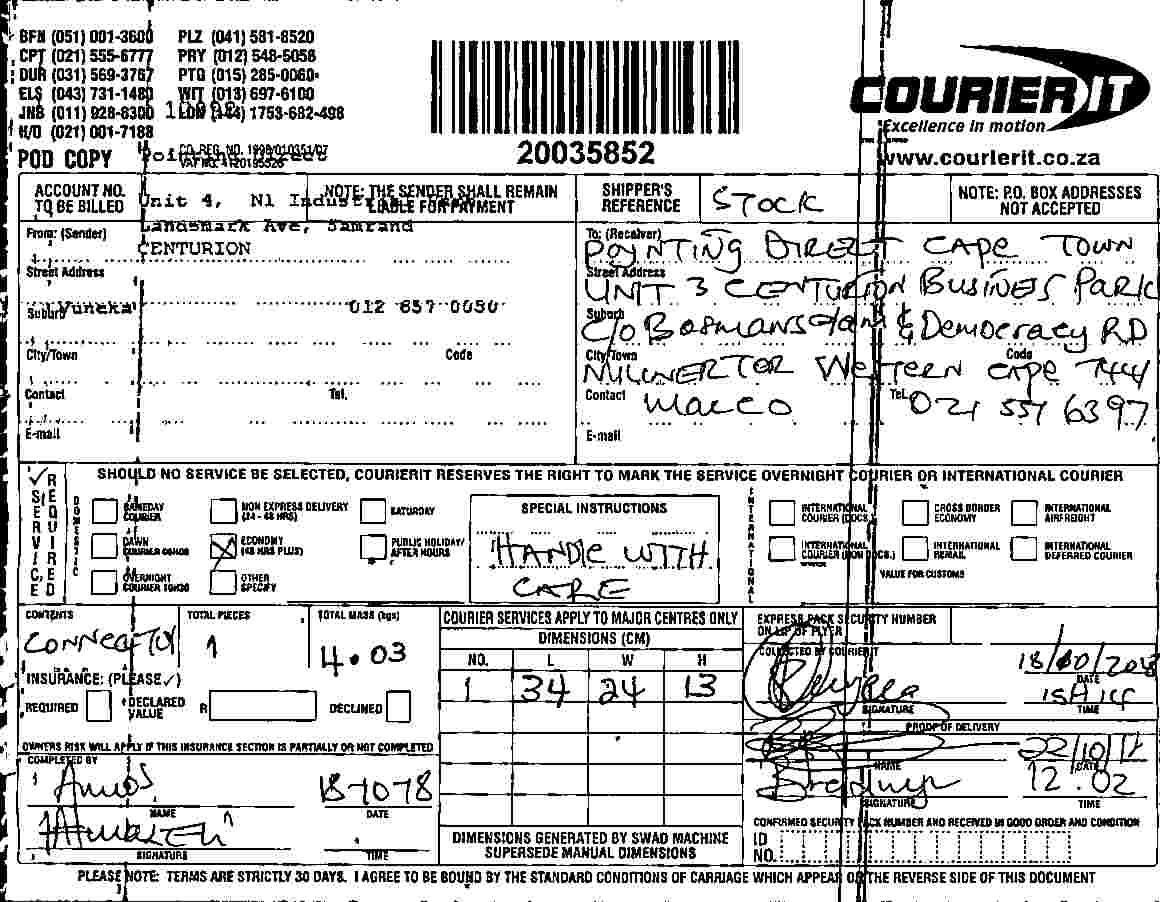 BFN (051) 001-3600 PLZ (041) 581-8520
CPT (021) 555-6777 PRY (012) 548-5058
DUR (031) 569-3767 PTG (015) 285-0060
ELS (043) 731-1480 WIT (013) 697-6100
JNB (011) 928-6300 LDN (144) 1753-682-498
H/O (021) 001-7188
POD COPY
CO. REG. NO. 1998/010351/07
20035852
COURIER IT
Excellence in motion
www.courierit.co.za
ACCOUNT NO. TO BE BILLED
NOTE: THE SENDER SHALL REMAIN LIABLE FOR PAYMENT
SHIPPER'S REFERENCE
STOCK
NOTE: P.O. BOX ADDRESSES NOT ACCEPTED
Unit 4, N1
From: (Sender)
Landsmark Ave, Samrand
CENTURION
Street Address
Suburb Yuneka 012 657 0050
City/Town Code
Contact Tel.
E-mail
To: (Receiver)
POYNTING DIRECT CAPE TOWN
Street Address
UNIT 3 CENTURION BUSINES PARK
Suburb
C/O Bosmansdam & Democracy RD
City/Town Code
WESTERN CAPE 7441
Contact Marco Tel. 021 551 6397
E-mail
SERVICE REQUIRED
SHOULD NO SERVICE BE SELECTED, COURIERIT RESERVES THE RIGHT TO MARK THE SERVICE OVERNIGHT COURIER OR INTERNATIONAL COURIER
DOMESTIC
SAMEDAY COURIER
NON EXPRESS DELIVERY (24 - 48 HRS)
SATURDAY
DAWN COURIER 09H00
ECONOMY (48 HRS PLUS)
PUBLIC HOLIDAY/ AFTER HOURS
OVERNIGHT COURIER 10H30
OTHER SPECIFY
SPECIAL INSTRUCTIONS
HANDLE WITH
CARE
INTERNATIONAL
INTERNATIONAL COURIER (DOCS.)
CROSS BORDER ECONOMY
INTERNATIONAL AIRFREIGHT
INTERNATIONAL COURIER (NON DOCS.)
INTERNATIONAL REMAIL
INTERNATIONAL DEFERRED COURIER
VALUE FOR CUSTOMS
CONTENTS TOTAL PIECES TOTAL MASS (kgs)
CONNECTOR 1 4.03
INSURANCE: (PLEASE ✓)
REQUIRED DECLARED VALUE R DECLINED
OWNERS RISK WILL APPLY IF THIS INSURANCE SECTION IS PARTIALLY OR NOT COMPLETED
COMPLETED BY
Amos 18-10-18
NAME DATE
SIGNATURE TIME
COURIER SERVICES APPLY TO MAJOR CENTRES ONLY
DIMENSIONS (CM)
NO. L W H
1 34 24 13
DIMENSIONS GENERATED BY SWAD MACHINE SUPERSEDE MANUAL DIMENSIONS
EXPRESS PACK SECURITY NUMBER ON LIP OF FLYER
COLLECTED BY COURIERIT
18/10/2018
DATE
15H14
SIGNATURE TIME
PROOF OF DELIVERY
NAME DATE
12.02
SIGNATURE TIME
CONFIRMED SECURITY PACK NUMBER AND RECEIVED IN GOOD ORDER AND CONDITION
ID NO.
PLEASE NOTE: TERMS ARE STRICTLY 30 DAYS. I AGREE TO BE BOUND BY THE STANDARD CONDITIONS OF CARRIAGE WHICH APPEAR ON THE REVERSE SIDE OF THIS DOCUMENT